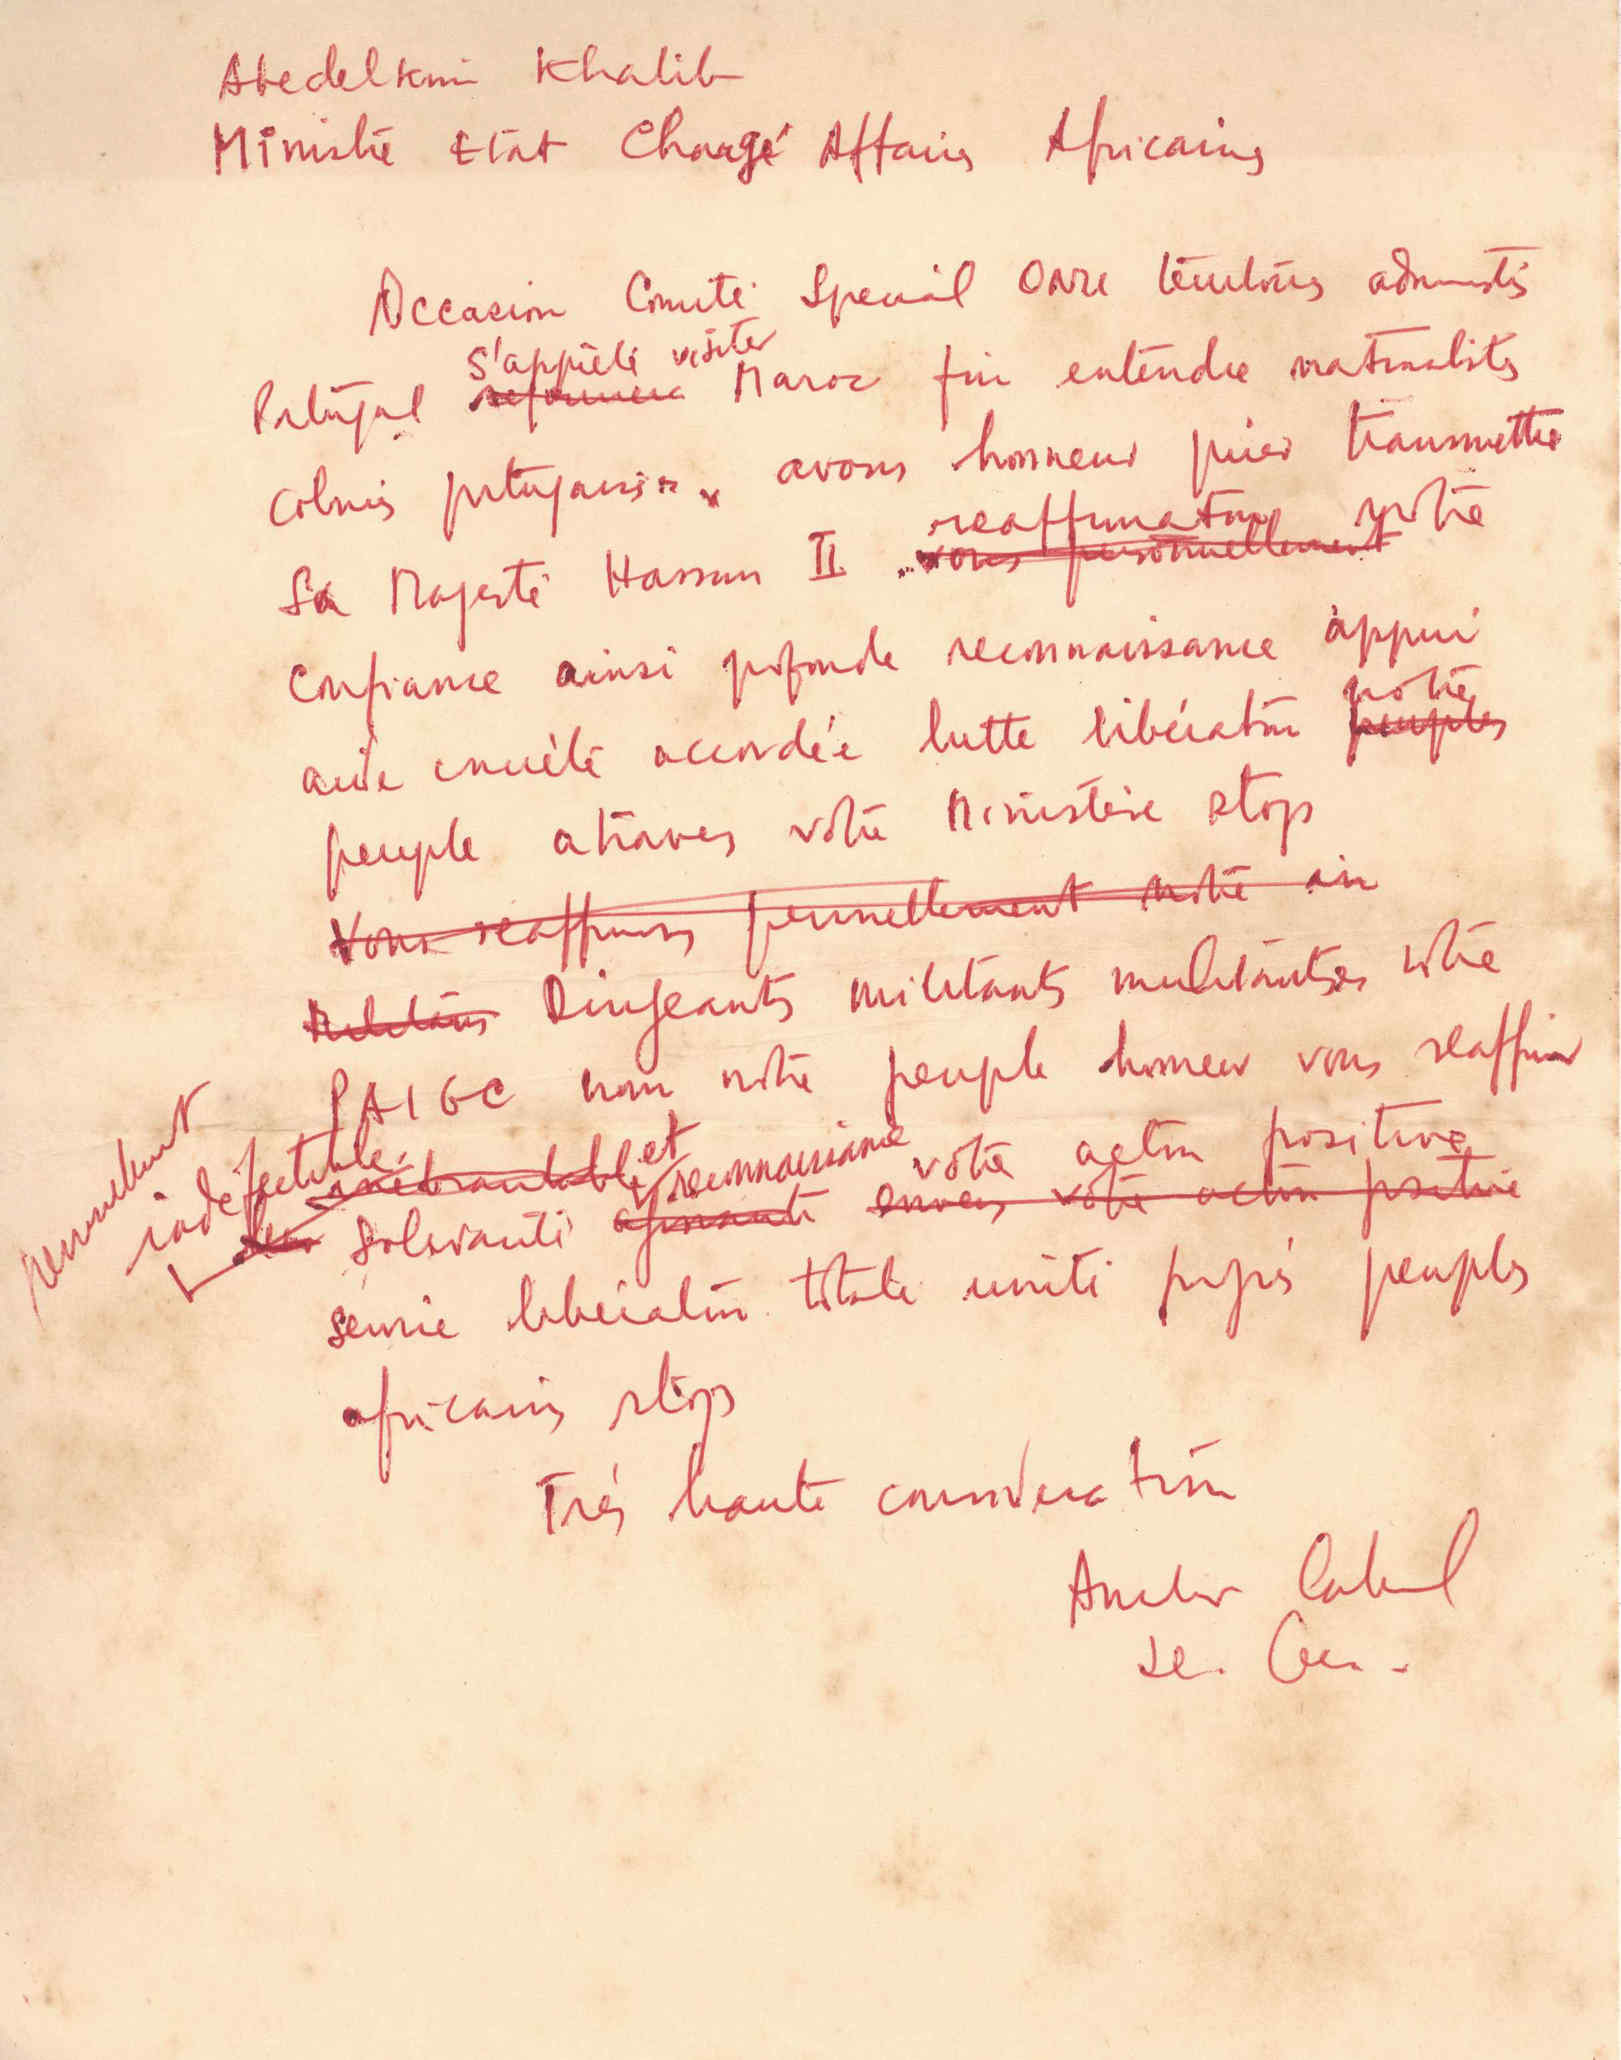 Abedelkrim Khatib
Ministre Etat Chargé Affaires Africaines
Occasion Comité Special ONU territoires administrés
s'apprête visiter
Portugal Maroc fin entendre nationalistes
colonies portugaises avons honneur prier transmettre
reaffirmation notre
Sa Majesté Hassan II vous personnellement
confiance ainsi profonde reconnaissance appui
notre
aide concrète accordée lutte libération peuples
peuple atraves votre Ministère stop
Vous reaffirmons personnellement notre
Militants Dirigeants militants militantes notre
PAIGC nom notre peuple honneur vous reaffirmer
personnellement
indéfectible inébranlable et reconnaissance votre action positive
solidarité agissante envers votre action positive
service libération totale unité progrès peuples
africains stop
Très haute consideration
Amilcar Cabral
Se. Gen.